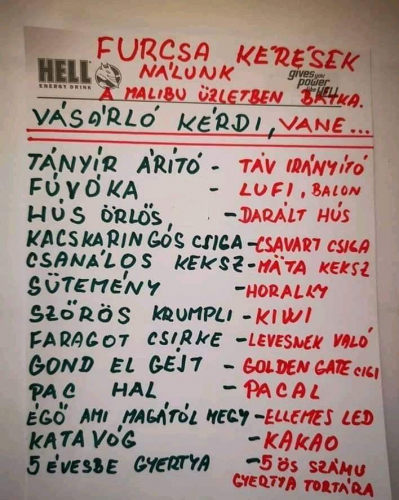 FURCSA KÉRÉSEK
NÁLUNK
HELL
ENERGY DRINK
gives you
power
like HELL
A MALIBU ÜZLETBEN BÁTKA.
VÁSÁRLÓ KÉRDI, VANE...
TÁNYÍR ÁRÍTÓ - TÁV IRÁNYÍTÓ
FÚVÓKA - LUFI, BALON
HÚS ÖRLŐS - DARÁLT HÚS
KACSKARINGÓS CSIGA - CSAVART CSIGA
CSANÁLOS KEKSZ - MÁTA KEKSZ
SÜTEMÉNY - HORALKY
SZŐRÖS KRUMPLI - KIWI
FARAGOT CSIRKE - LEVESNEK VALÓ
GOND EL GÉJT - GOLDEN GATE CIGI
PAC HAL - PACAL
ÉGŐ AMI MAGÁTÓL MEGY - ELLEMES LED
KATAVÓG - KAKAO
5 ÉVESBE GYERTYA - 5 ÖS SZÁMU
GYERTYA TORTÁRA